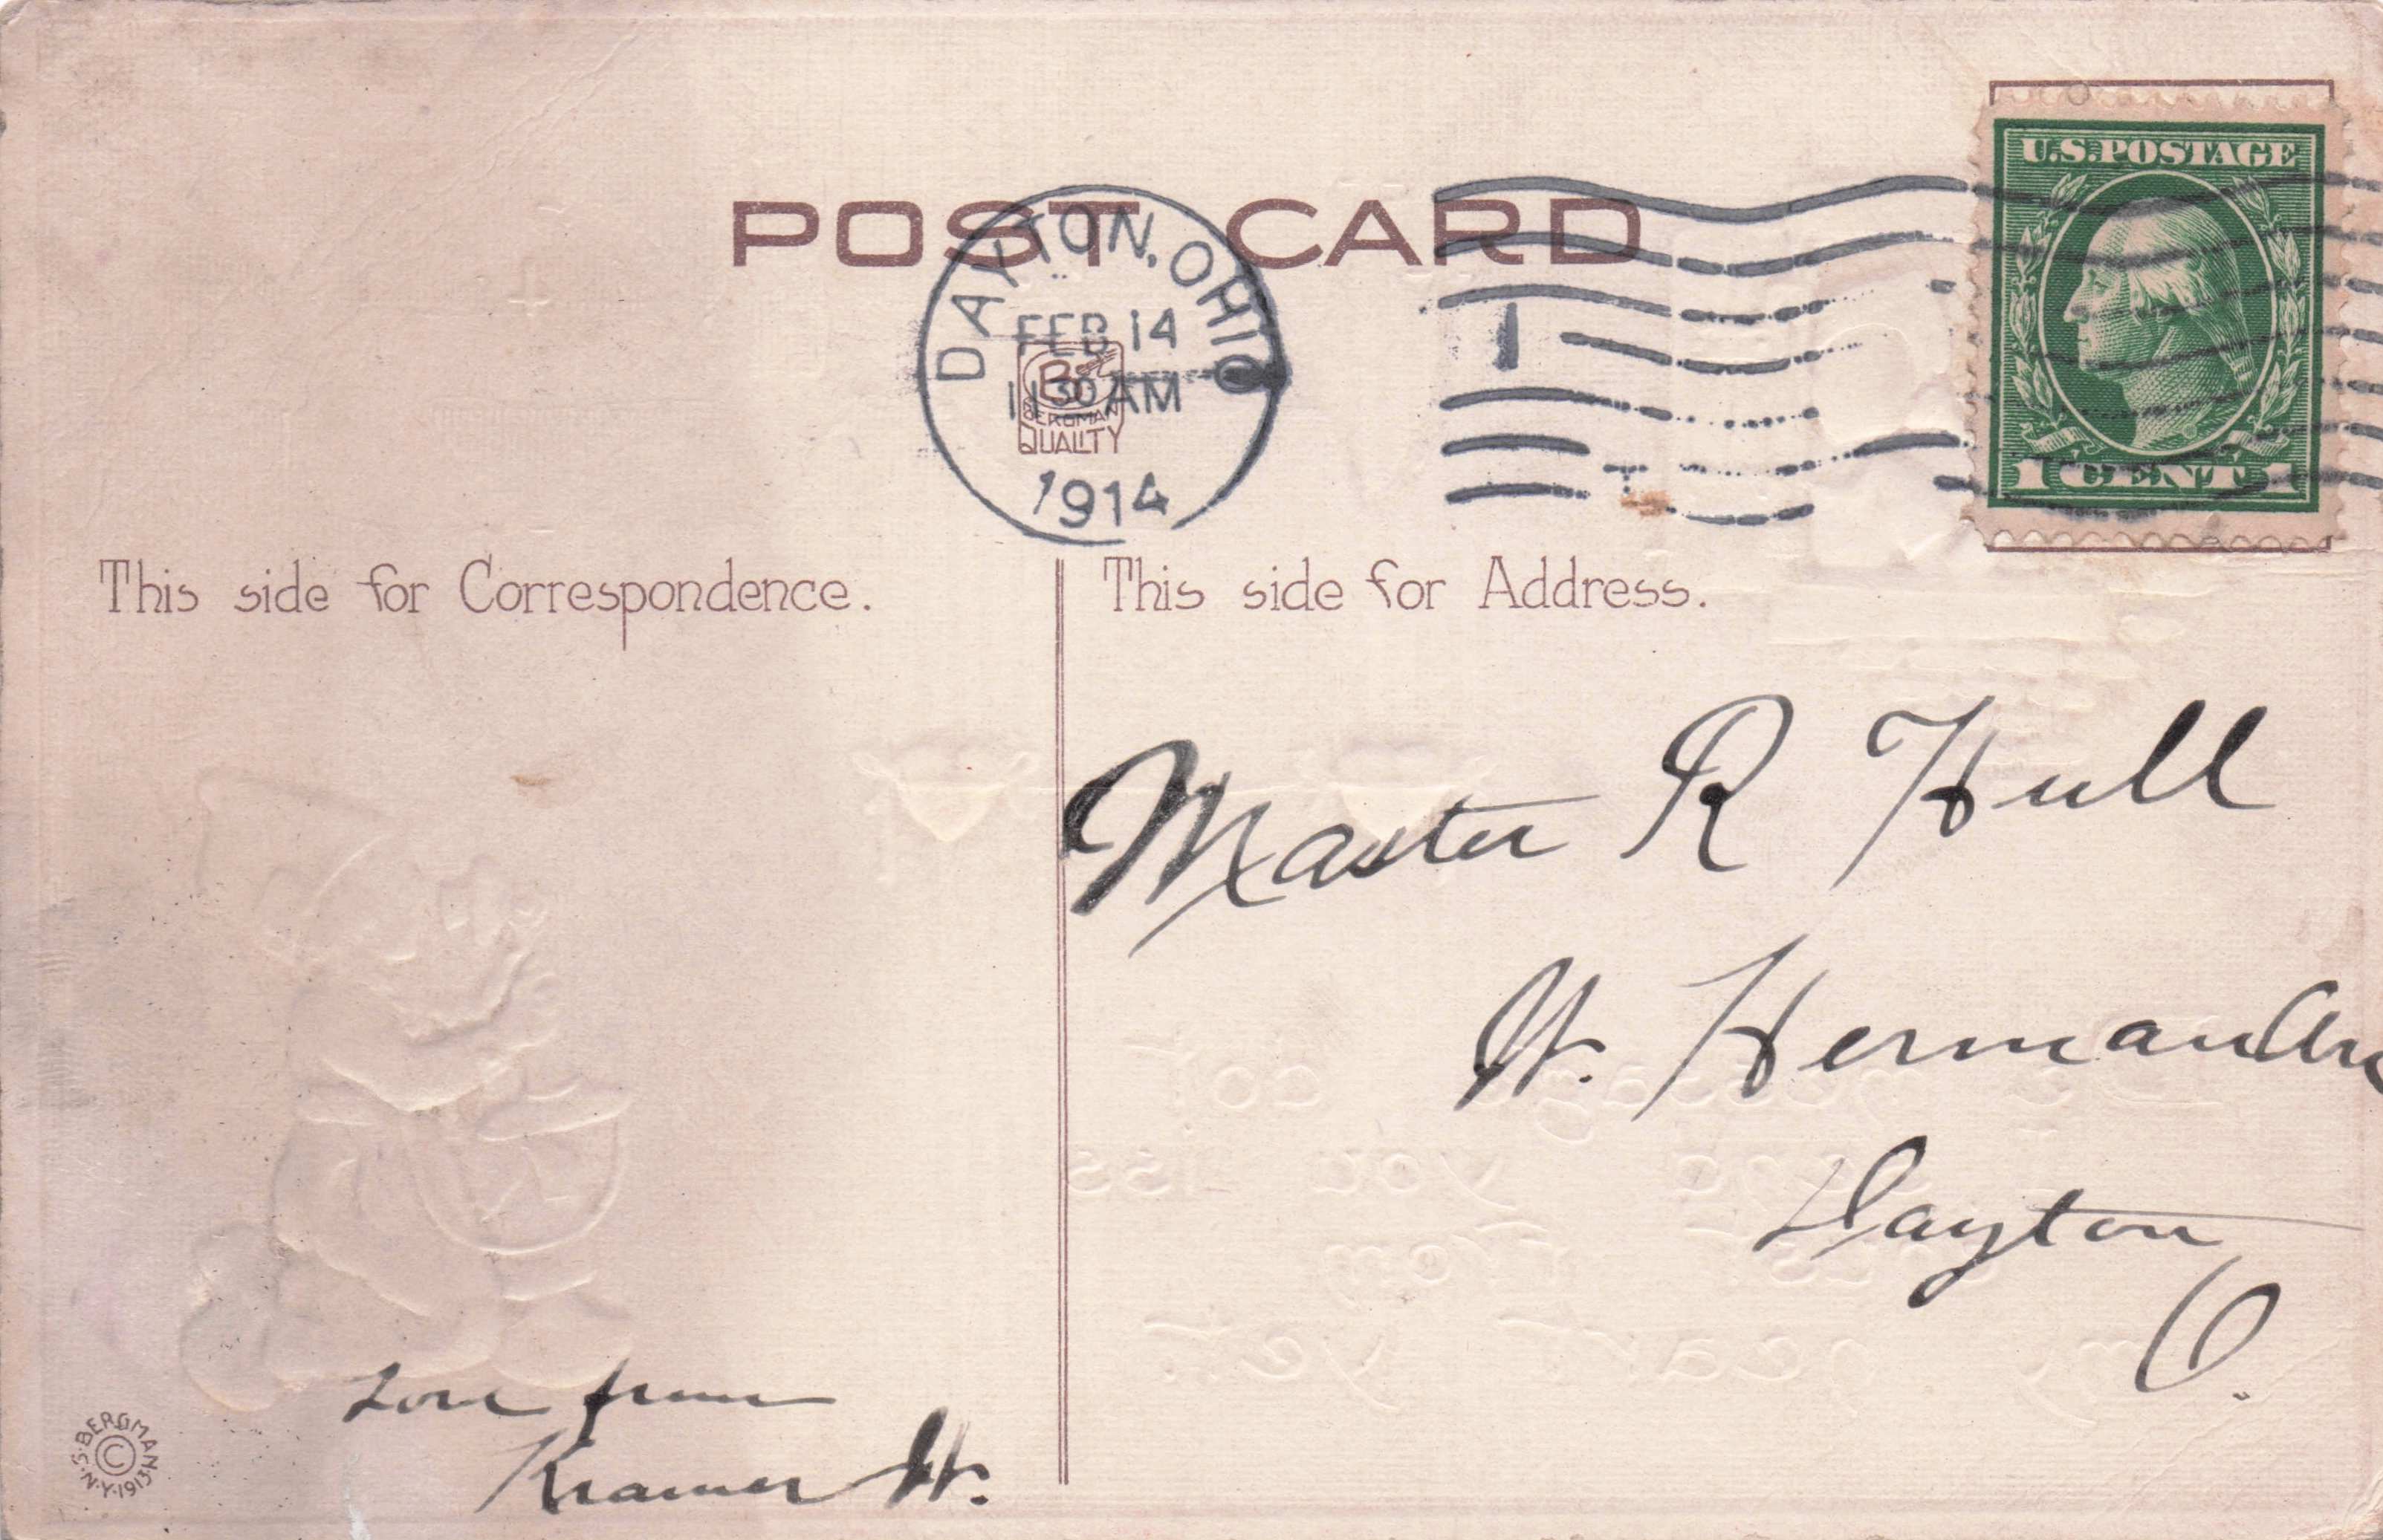 POST CARD
U.S. POSTAGE
1 CENT 1
DAYTON, OHIO
FEB 14
11 30 AM
1914
1
BERGMAN
QUALITY
This side for Correspondence.
This side for Address.
Master R Hull
W. Herman Ave
Dayton
O.
Love from
Kramer W.
S. BERGMAN N.Y. 1913
©